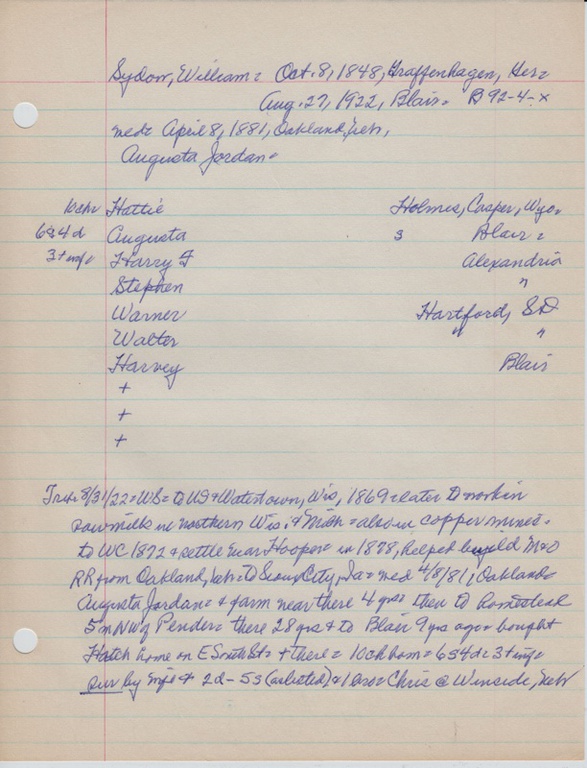 Sydow, William = Oct. 8, 1848, Graffenhagen, Ger =
Aug. 27, 1922, Blair = B 92-4-x
med = April 8, 1881, Oakland, Neb,
Augusta Jordan =
10 chr Hattie Holmes, Casper, Wyo =
6s 4d Augusta s Blair =
3 + inf = Harry F Alexandria
Stephen "
Warner Hartford, SD
Walter " "
Harvey Blair
+
+
+
Trib = 8/31/22 = WB = to US + Watertown, Wis, 1869 = later to work in
sawmills in northern Wis. + Mich = also in copper mines =
to WC 1872 + settle near Hooper = in 1878, helped build M+O
RR from Oakland, Neb = to Sioux City, Ia = med 4/8/81, Oakland =
Augusta Jordan = + farm near there 4 yrs = then to homestead
5 m NW of Pender = there 28 yrs + to Blair 9 yrs ago = bought
Hatch home on E South St = + there = 10 ch born = 6s 4d = 3 + inf =
sur by wife + 2d - 5s (as listed) + 1 bro = Chris @ Winside, Neb